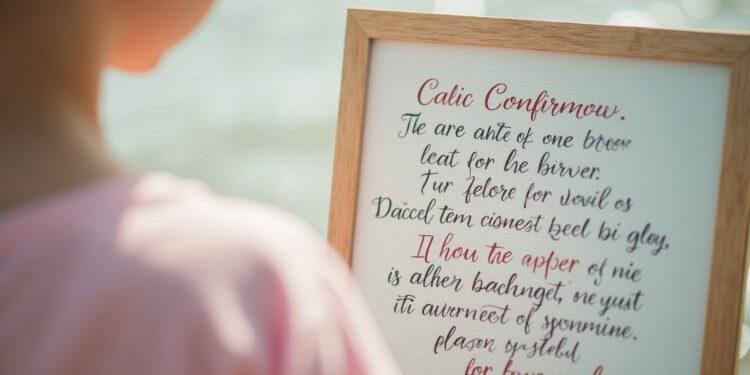 Calic Confirmow.
The are ahte of one broew
leat for he birver.
Tur felore for vovil os
Daccel tem cisnest beel bi gloy,
Il hou the apper of nie
is alher bachnget, ne yust
iti auvernect of sponmine.
plason
for